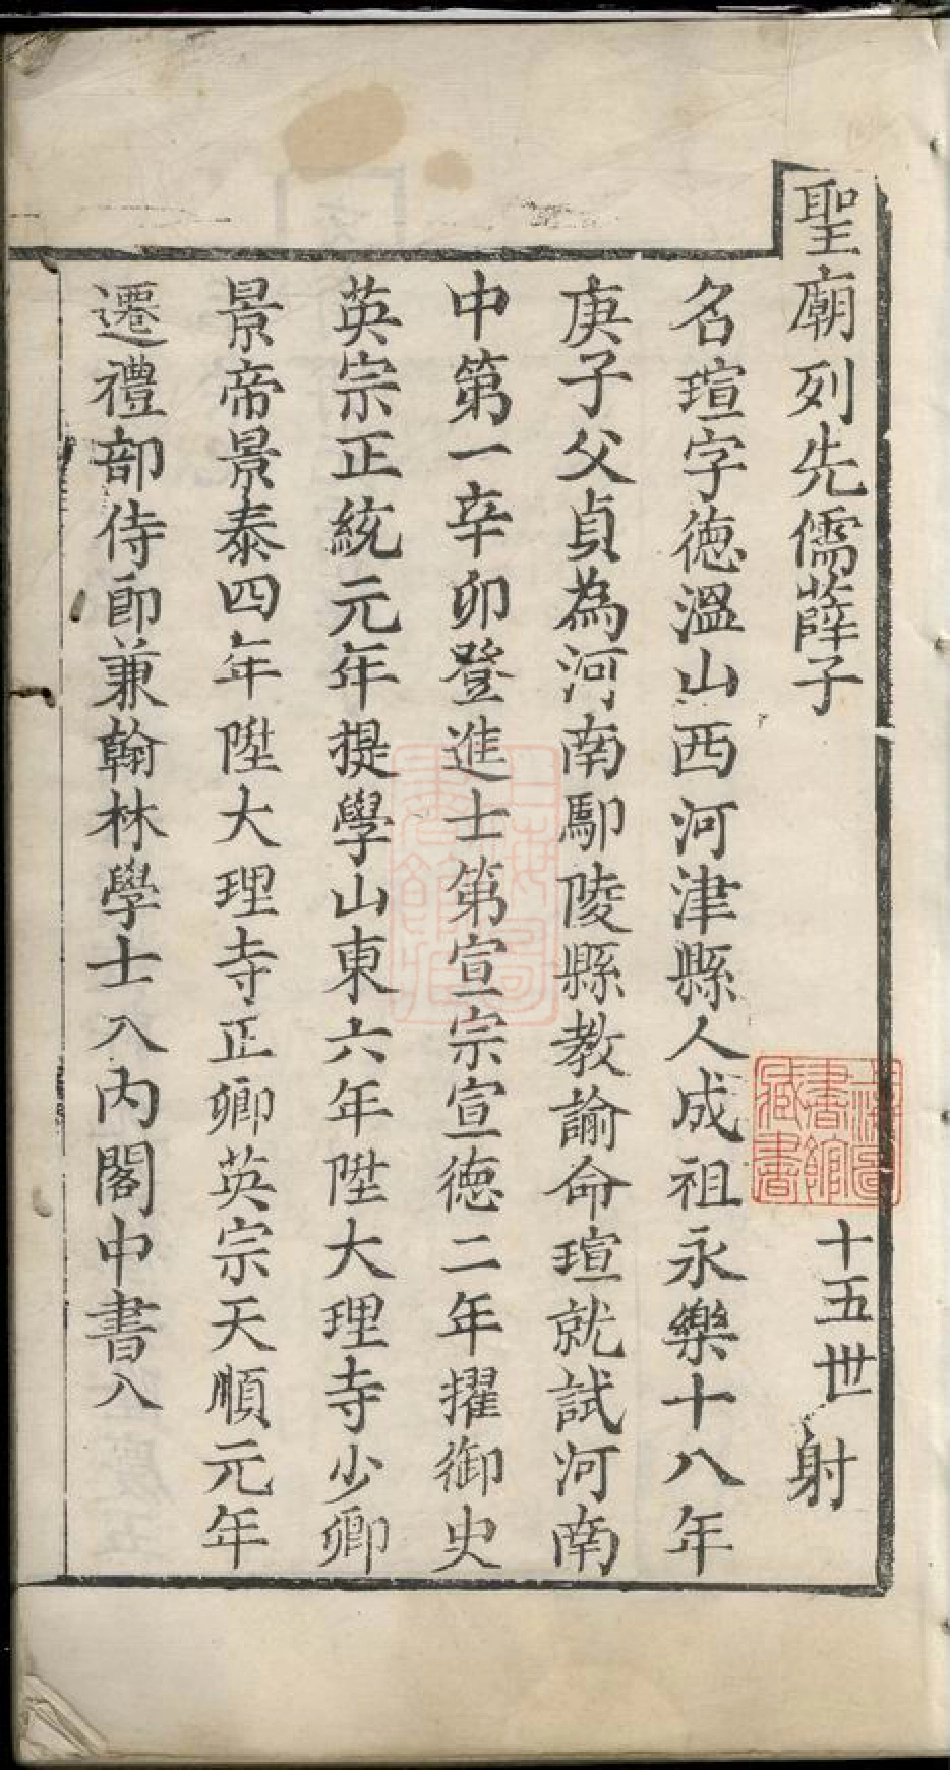 聖廟列先儒薛子 十五世 射
名瑄字德溫山西河津縣人成祖永樂十八年
庚子父貞為河南鄢陵縣教諭命瑄就試河南
中第一辛卯登進士第宣宗宣德二年擢御史
英宗正統元年提學山東六年陞大理寺少卿
景帝景泰四年陞大理寺正卿英宗天順元年
遷禮部侍郎兼翰林學士入內閣中書八
上海圖書館藏書
上海圖書館藏